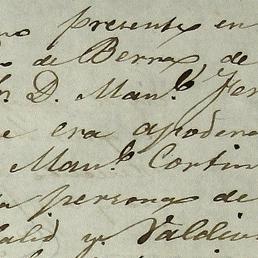 presente en
de Berra, de
D. Man.l Fer
e era apodera
Man.l Cortin
persona de
lid y Valdiv